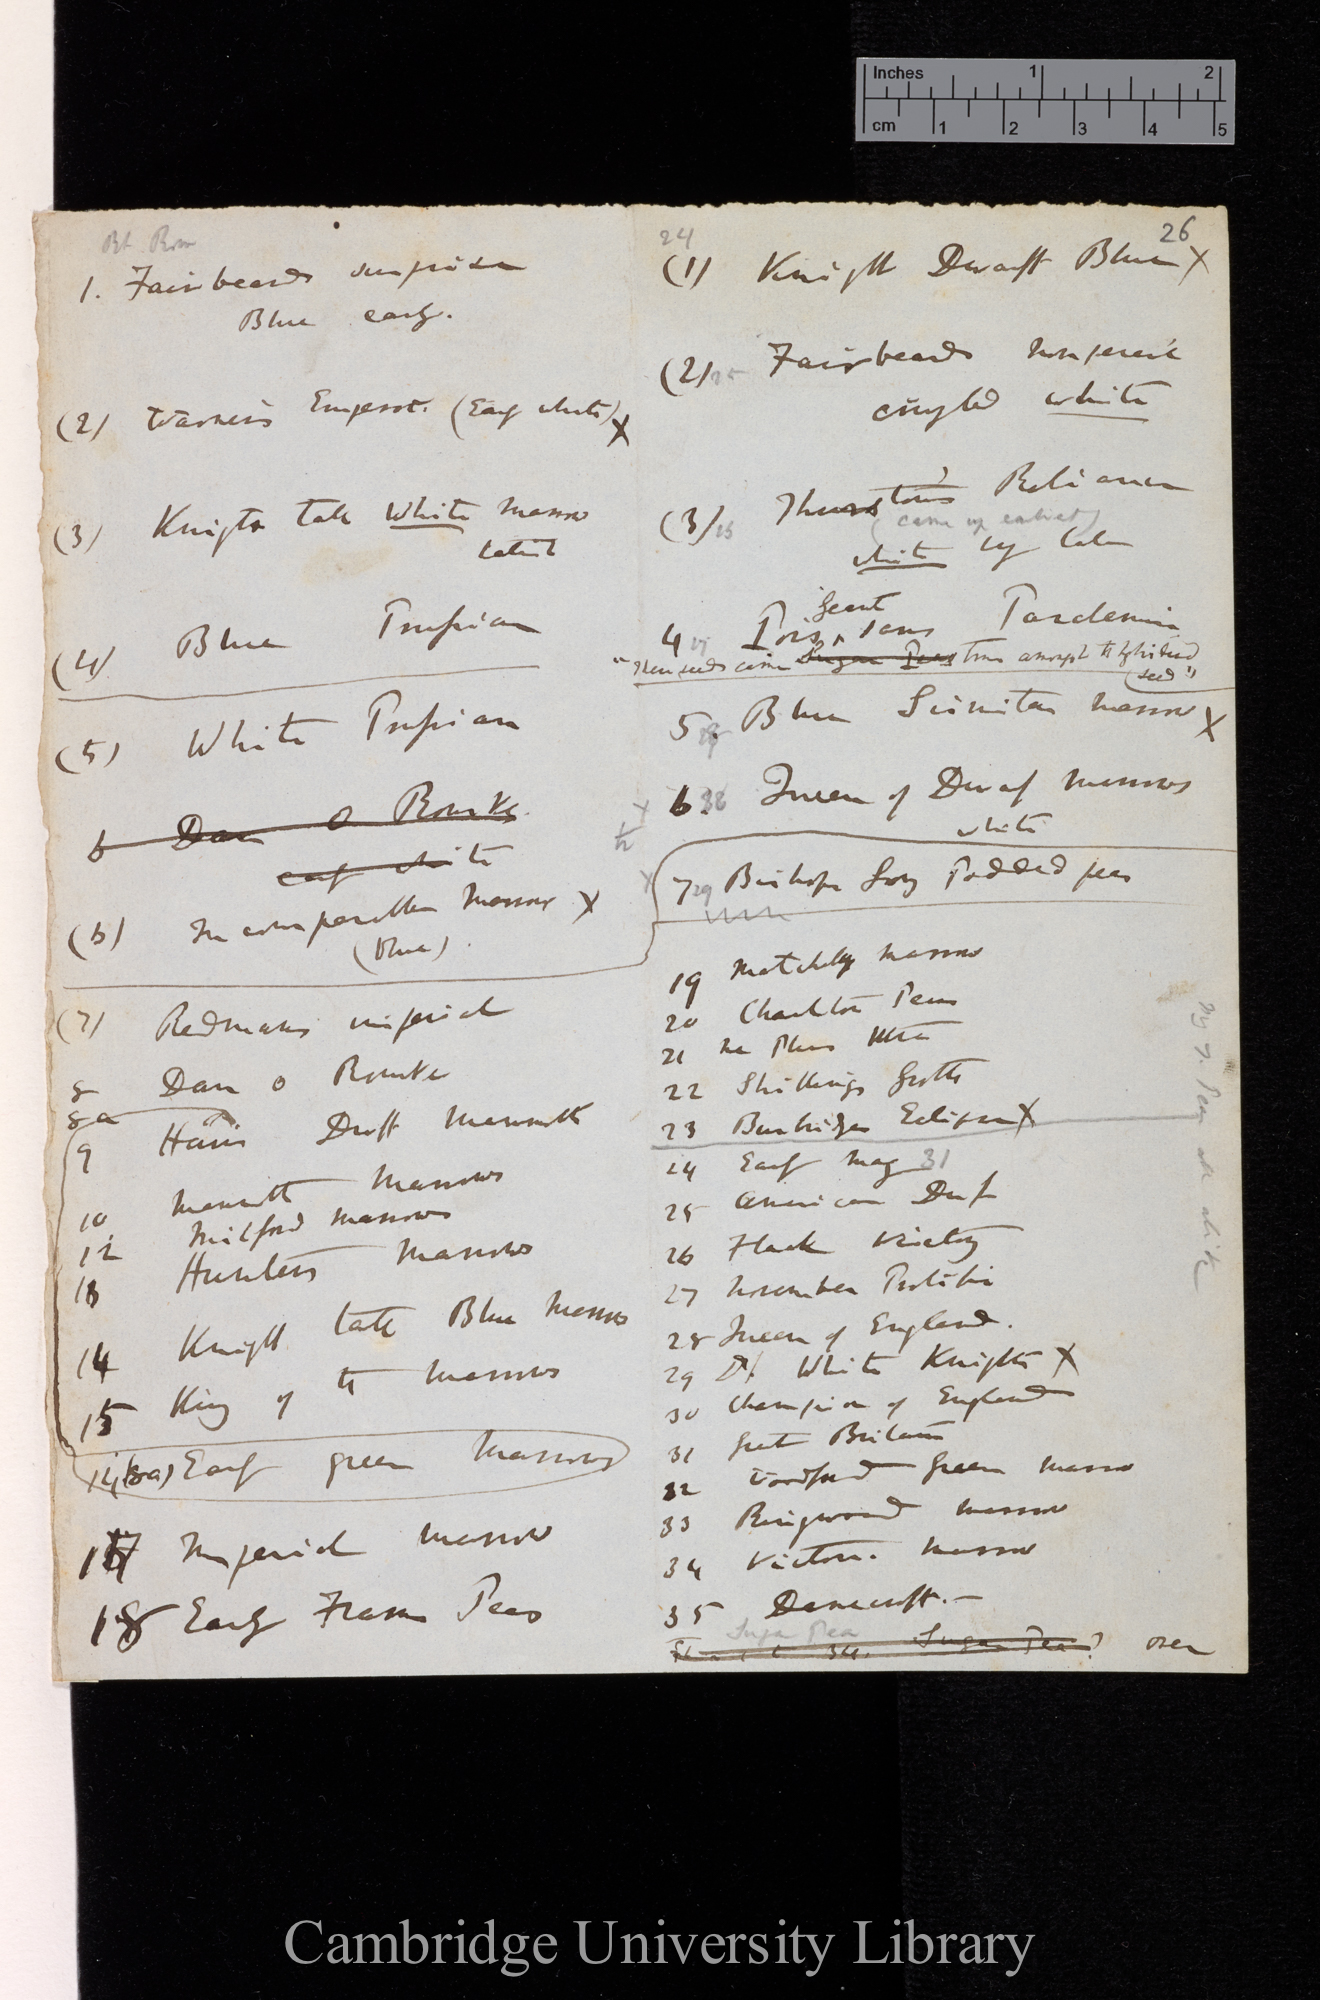 Inches 1 2
cm 1 2 3 4 5
26
1. Fairbeards surprise
Blue early.
(2) Warners Emperor. (Early white) X
(3) Knights tall White Marrow
latest
(4) Blue Prussian
(5) White Prussian
6 Dan O Rourke
early white
(6) Incomparable Marrow X
(blue)
(7) Redmans imperial
8 Dan o Rourke
8a
9 Hairs Dwff Mammoth
10 Mammoth Marrows
12 Milford Marrows
13 Hunters Marrows
14 Knight tall Blue Marrow
15 King of the Marrows
(8a) Early green Marrows
17 Imperial Marrow
18 Early Frame Peas
24
(1) Knight Dwarff Blue X
(2) 25 Fairbeards nonpareil
wrinkled white
(3) Thurstons Reliance
(came up earliest)
white by label
4 Pois Geant sans Parchemin
"These seeds came Sugar Peas true amongst the hybridised
seed"
5. Blue Scimitar Marrow X
6. Queen of Dwarf Marrows
white
7 29 Bishops Long Podded peas
19 Matchless Marrow
20 Charlton Peas
21 Ne Plus Ultra
22 Shillings Grotto
23 Burbidges Eclipse X
24 Early May 31
25 American Dwf
26 Flack Victory
27 November Prolific
28 Queen of England.
29 Dr. White Knights X
30 Champion of England
31 Great Britain
32 Woodford Green Marrow
33 Ringwood Marrow
34 Victoria Marrow
35 Danecroft.—
Sugar Pea
34. Sugar Pea? over
Cambridge University Library